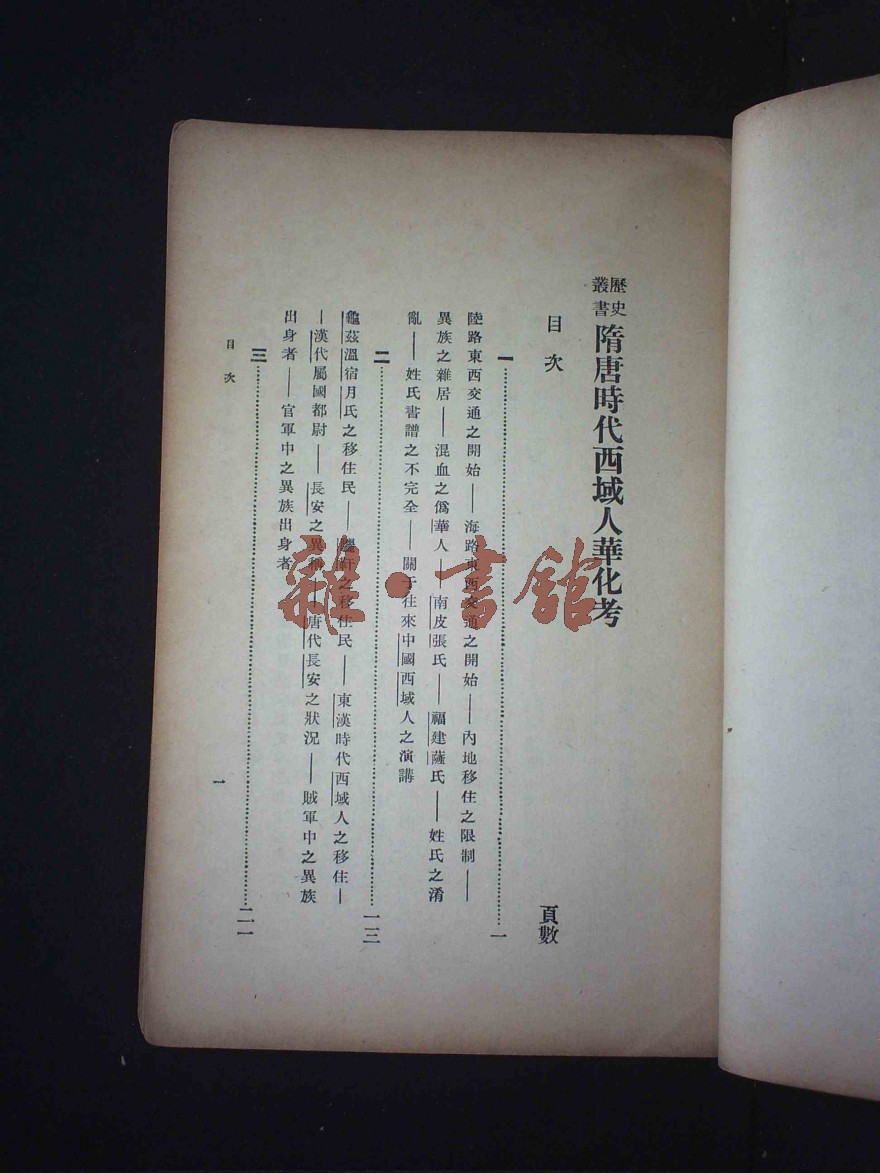 歷史叢書
隋唐時代西域人華化考
目次
頁數
一⋯⋯一
陸路東西交通之開始——海路東西交通之開始——內地移住之限制——
異族之雜居——混血之僞華人——南皮張氏——福建薩氏——姓氏之淆
亂——姓氏書譜之不完全——關于往來中國西域人之演講
二⋯⋯一三
龜茲溫宿月氏之移住民——驪靬之移住民——東漢時代西域人之移住—
—漢代屬國都尉——長安之異稱——唐代長安之狀況——賊軍中之異族
出身者——官軍中之異族出身者
三⋯⋯二一
目次
一
雜·書館